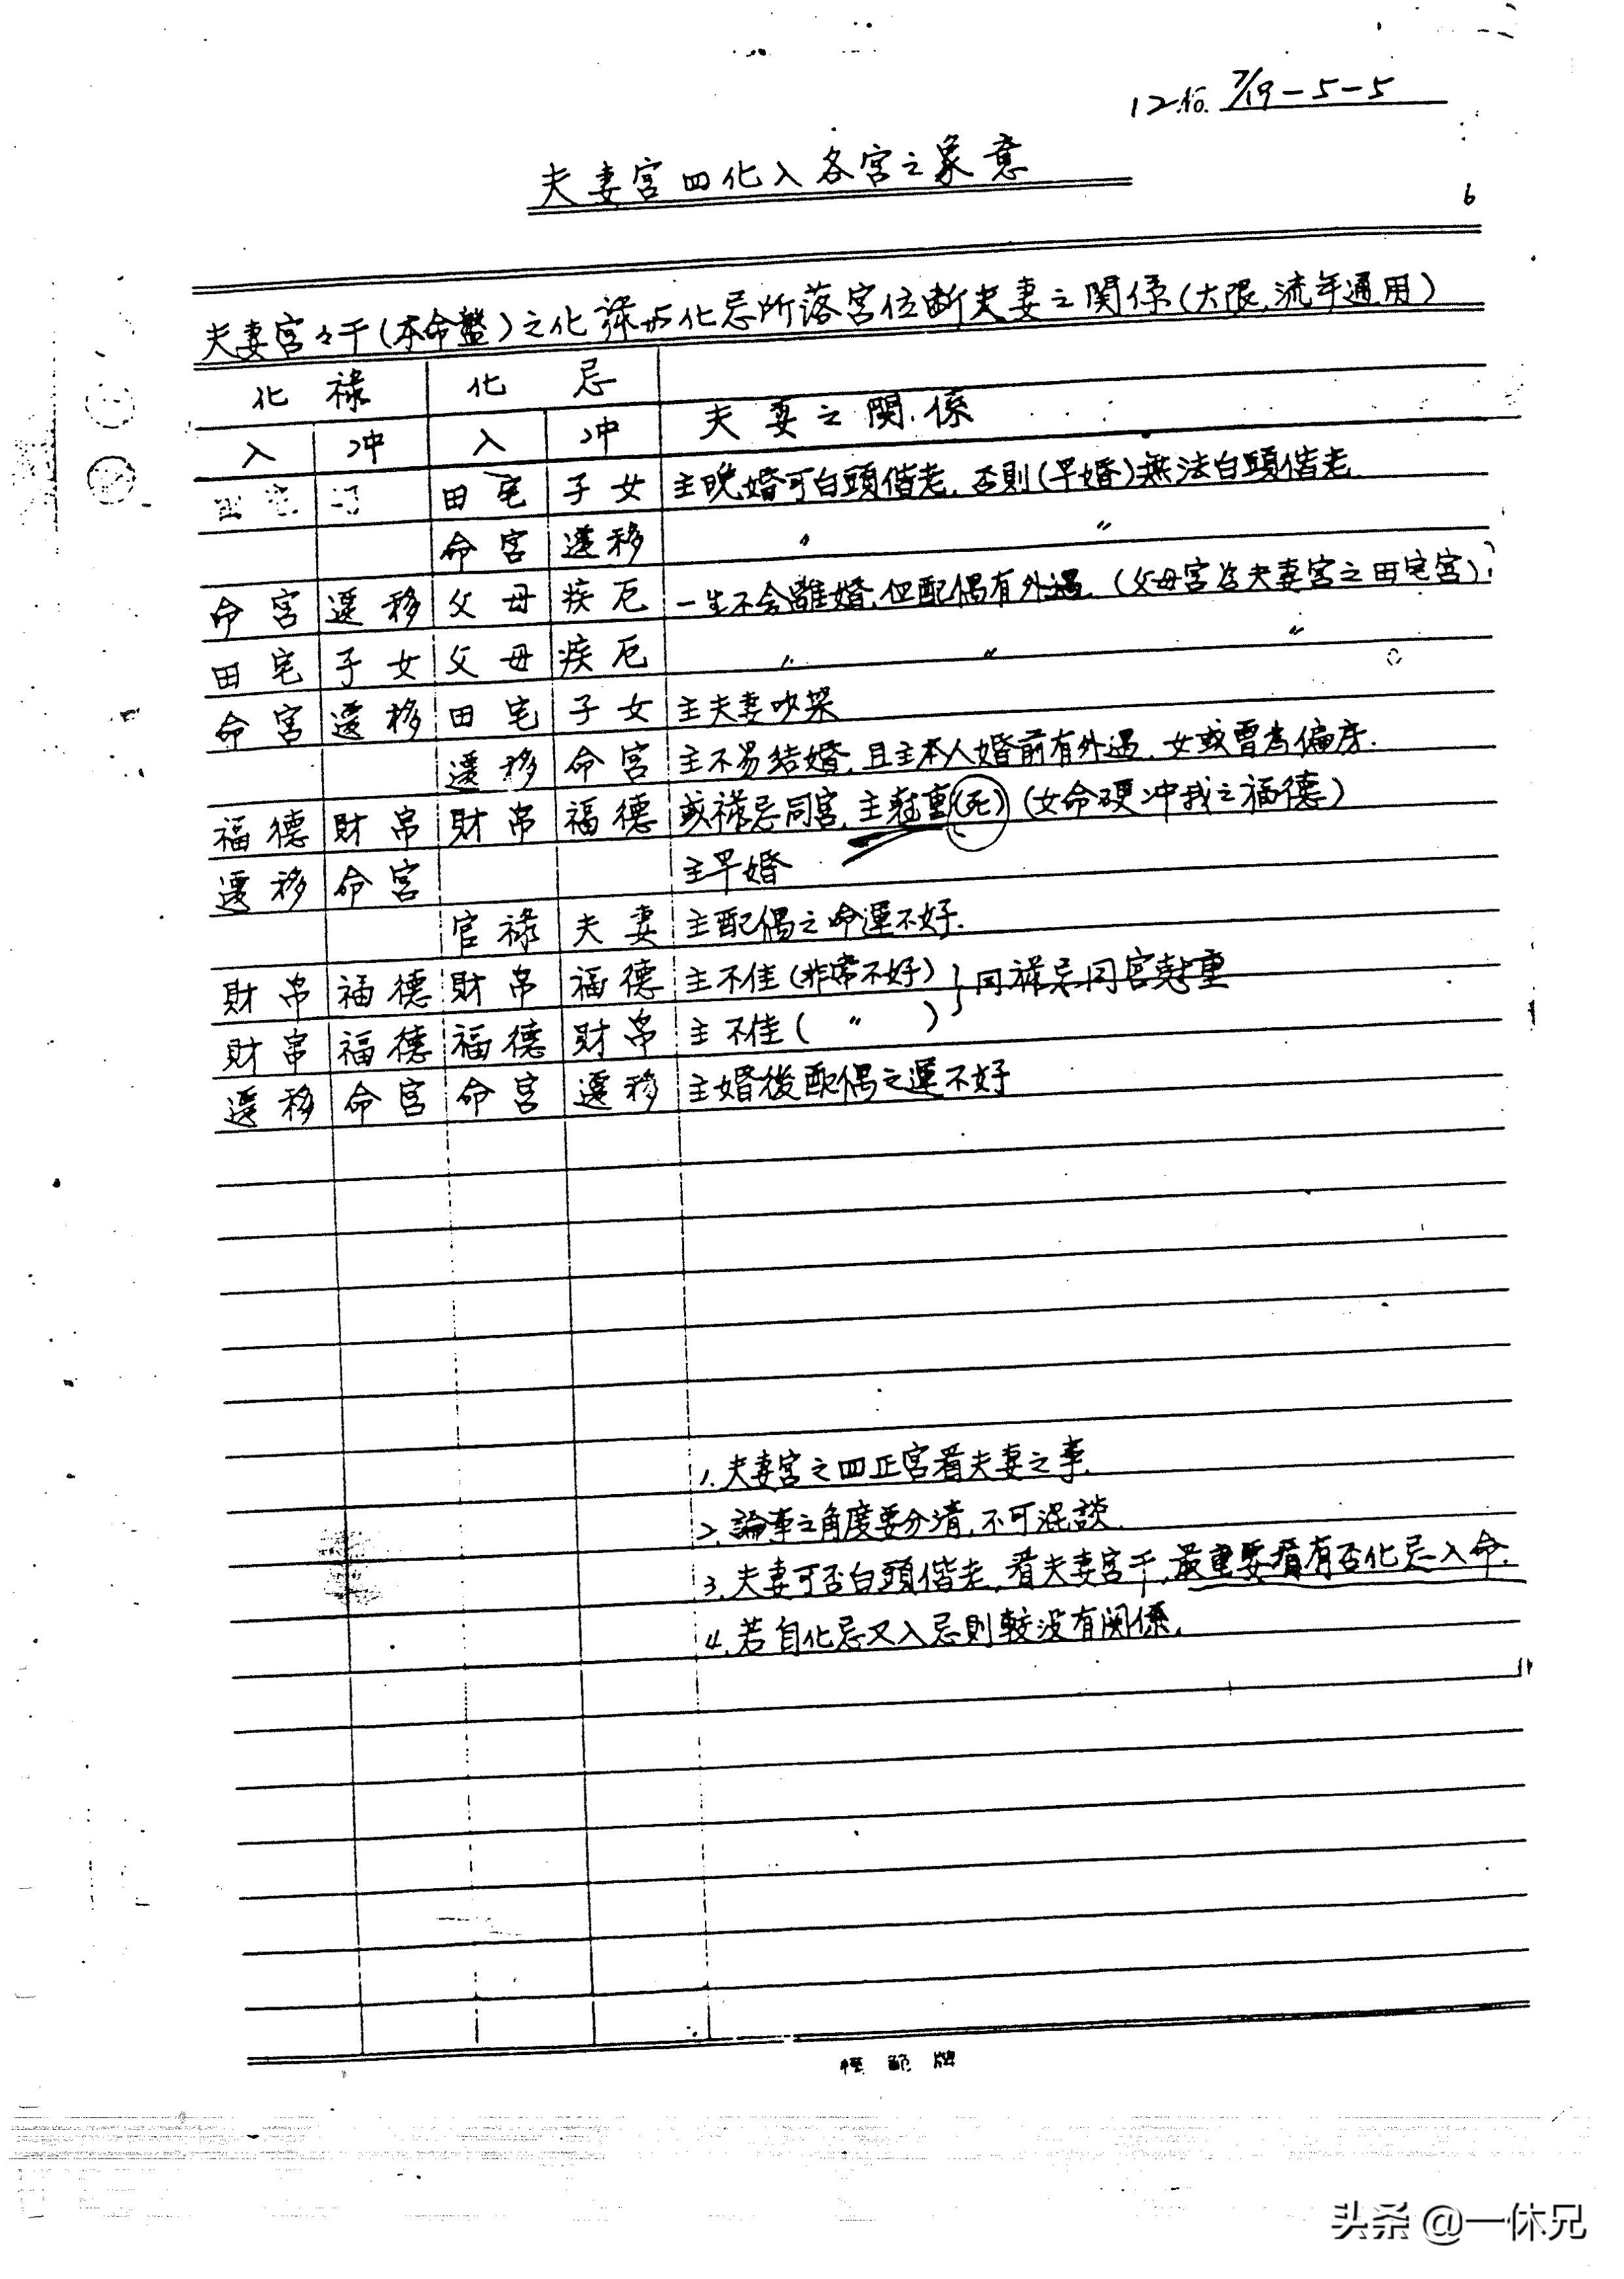 7/19-5-5
夫妻宮四化入各宮之象意
6
夫妻宮々干(本命盤)之化祿与化忌所落宮位断夫妻之関係(大限.流年通用)
化祿 化忌
入 冲 入 冲 夫妻之関係
田宅 子女 主晚婚可白頭偕老,否則(早婚)無法白頭偕老
命宮 遷移 〃 〃
命宮 遷移 父母 疾厄 一生不会離婚,但配偶有外遇.(父母宮為夫妻宮之田宅宮)
田宅 子女 父母 疾厄 〃 〃 〃
命宮 遷移 田宅 子女 主夫妻吵架
遷移 命宮 主不易結婚,且主本人婚前有外遇.女或曾為偏房.
福德 財帛 財帛 福德 或祿忌同宮,主 重(死)(女命硬冲我之福德)
遷移 命宮 主早婚
官祿 夫妻 主配偶之命運不好.
財帛 福德 財帛 福德 主不佳(非常不好)}同祿忌同宮 重
財帛 福德 福德 財帛 主不佳( 〃 )
遷移 命宮 命宮 遷移 主婚後配偶之運不好
1.夫妻宮之四正宮看夫妻之事.
2.論事之角度要分清,不可混談.
3.夫妻可否白頭偕老,看夫妻宮干,最重要看有否化忌入命.
4.若自化忌又入忌則較没有関係.
模範牌
头条 @一休兄